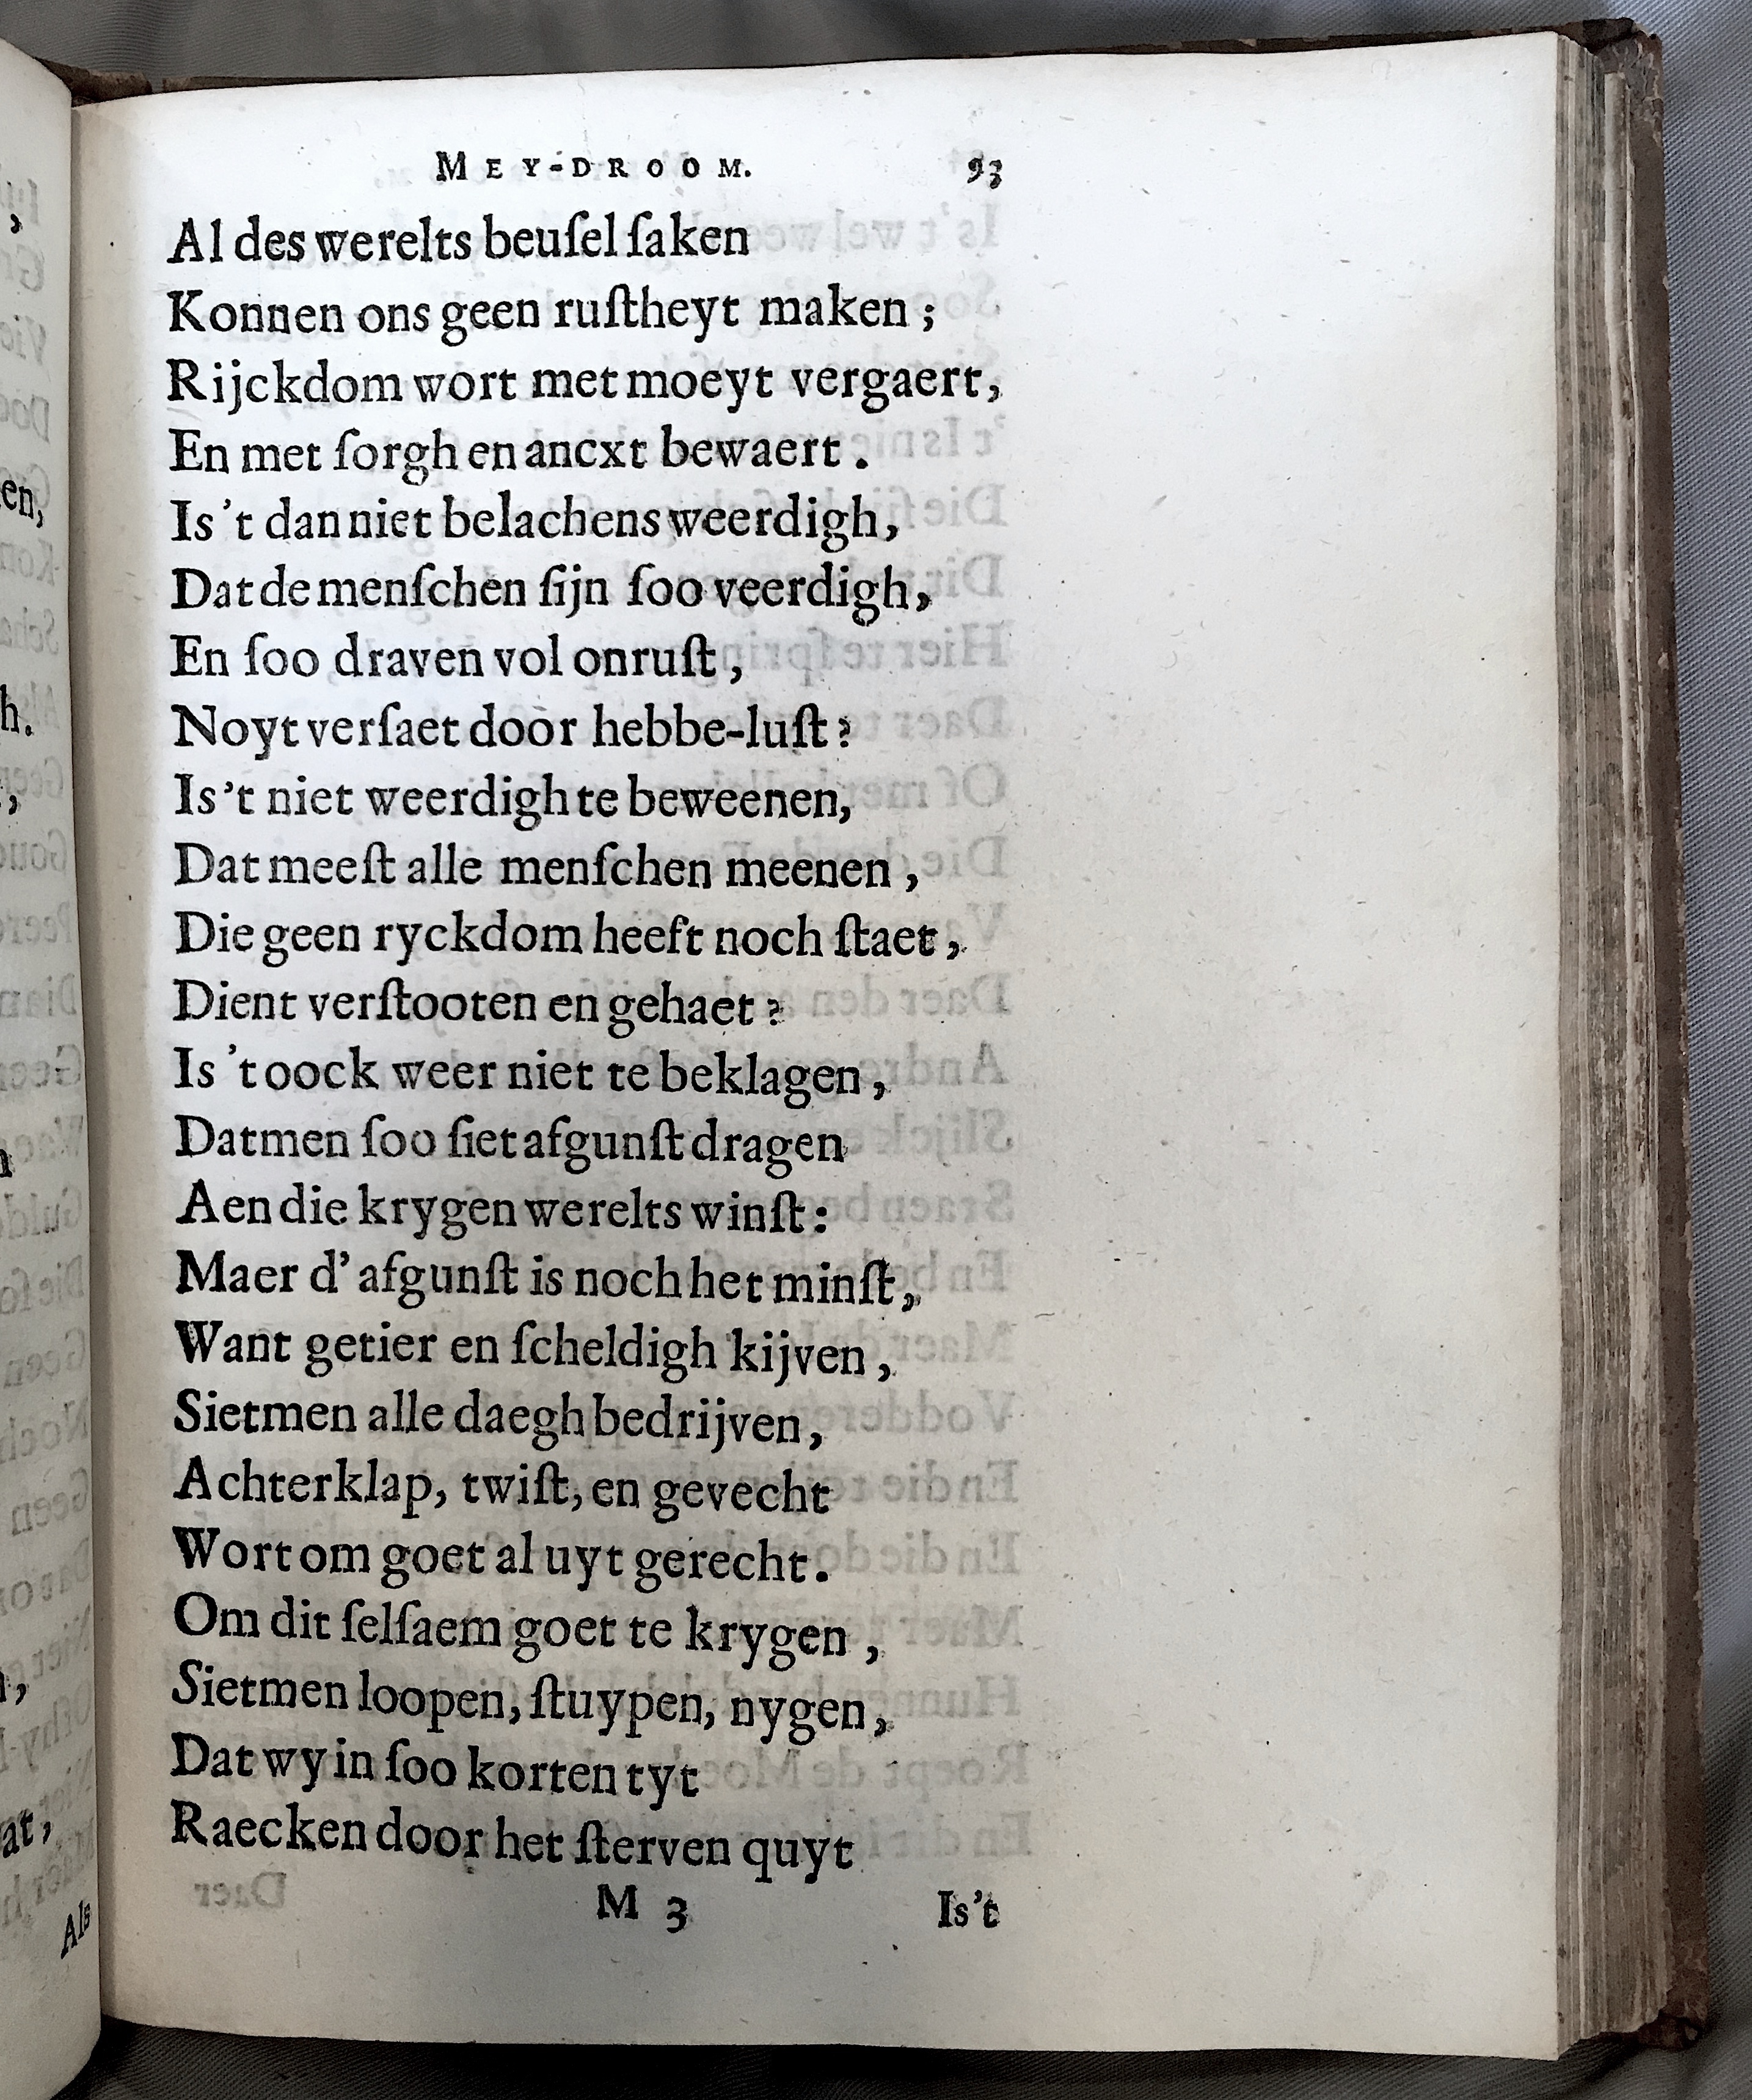 MEY-DROOM. 93
Al des werelts beuſel ſaken
Konnen ons geen ruſtheyt maken ;
Rijckdom wort met moeyt vergaert,
En met ſorgh en ancxt bewaert .
Is 't dan niet belachens weerdigh,
Dat de menſchen ſijn ſoo veerdigh,
En ſoo draven vol onruſt ,
Noyt verſaet door hebbe-luſt ?
Is 't niet weerdigh te beweenen,
Dat meeſt alle menſchen meenen ,
Die geen ryckdom heeft noch ſtaet ,
Dient verſtooten en gehaet ?
Is 't oock weer niet te beklagen ,
Datmen ſoo ſiet afgunſt dragen
Aen die krygen werelts winſt :
Maer d' afgunſt is noch het minſt ,
Want getier en ſcheldigh kijven ,
Sietmen alle daegh bedrijven ,
Achterklap, twiſt, en gevecht
Wort om goet al uyt gerecht .
Om dit ſelſaem goet te krygen ,
Sietmen loopen, ſtuypen, nygen,
Dat wy in ſoo korten tyt
Raecken door het ſterven quyt
M 3 Is 't